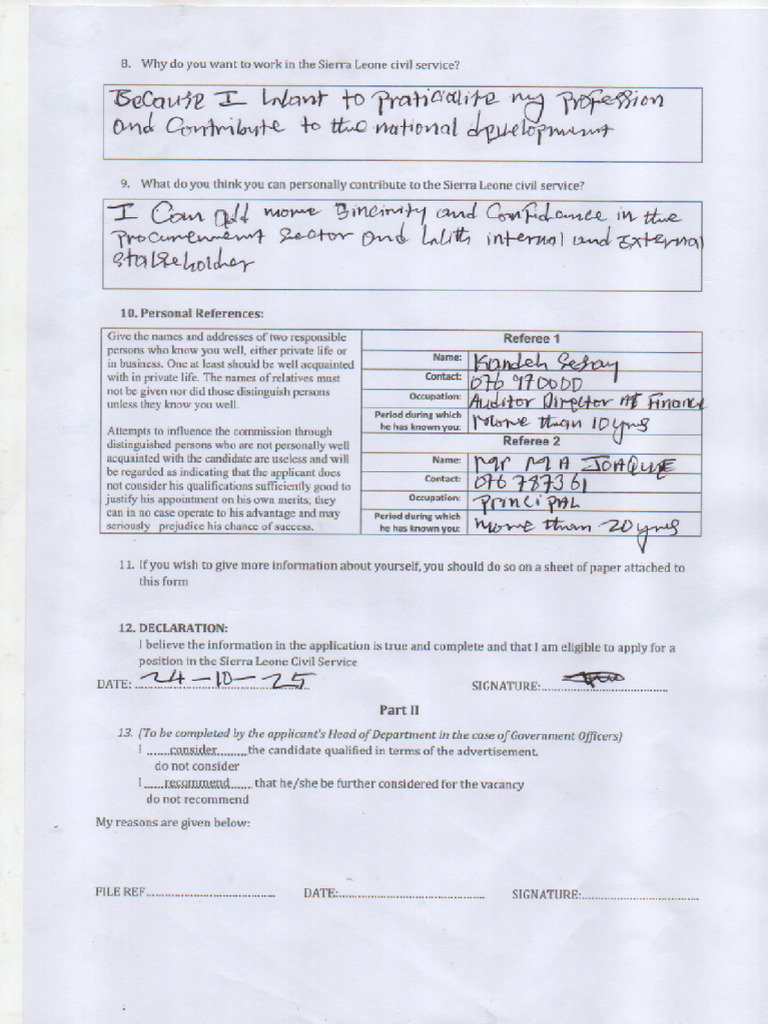 8. Why do you want to work in the Sierra Leone civil service?
Because I want to praticalite my profession
and contribute to the national development
9. What do you think you can personally contribute to the Sierra Leone civil service?
I can add more Sincirity and Confidance in the
procurement sector and with internal and External
stakeholder
10. Personal References:
Give the names and addresses of two responsible
persons who know you well, either private life or
in business. One at least should be well acquainted
with in private life. The names of relatives must
not be given nor did those distinguish persons
unless they know you well.
Attempts to influence the commission through
distinguished persons who are not personally well
acquainted with the candidate are useless and will
be regarded as indicating that the applicant does
not consider his qualifications sufficiently good to
justify his appointment on his own merits; they
can in no case operate to his advantage and may
seriously prejudice his chance of success.
Referee 1
Name: Kandeh Sesay
Contact: 076 970000
Occupation: Auditor Director At Finance
Period during which
he has known you: More than 10 yrs
Referee 2
Name: Mr M A JOAQUE
Contact: 076 787361
Occupation: PrinciPAL
Period during which
he has known you: more than 20 yrs
11. If you wish to give more information about yourself, you should do so on a sheet of paper attached to
this form
12. DECLARATION:
I believe the information in the application is true and complete and that I am eligible to apply for a
position in the Sierra Leone Civil Service
DATE: 24-10-25 SIGNATURE:
Part II
13. (To be completed by the applicant's Head of Department in the case of Government Officers)
I ......consider........the candidate qualified in terms of the advertisement.
do not consider
I ......recommend...... that he/she be further considered for the vacancy
do not recommend
My reasons are given below:
FILE REF................................ DATE:..................................... SIGNATURE:..............................